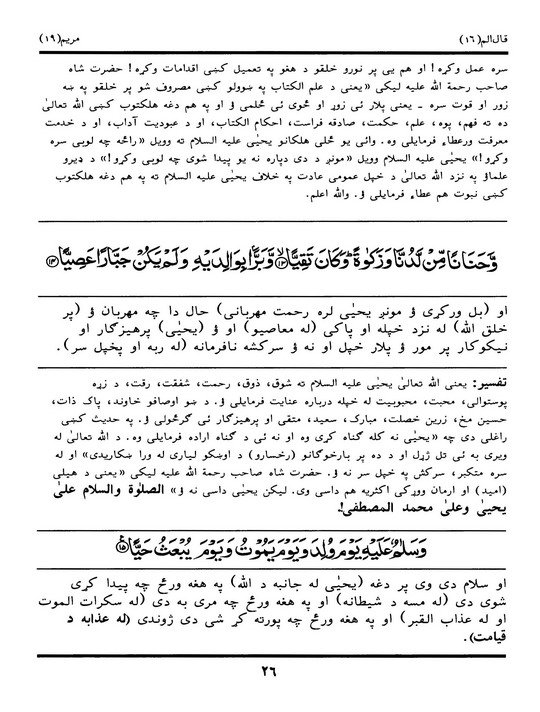 قال الم (١٦) مريم (١٩)
سره عمل وکړه! او هم يې پر نورو خلقو د هغو په تعميل کښې اقدامات وکړه! حضرت شاه
صاحب رحمة الله عليه ليکي «يعنې د علم الکتاب په ښوولو کښې مصروف شو پر خلقو په ښه
زور او قوت سره ـ يعنې پلار ئې زوړ او ځوى ئې ځلمى ؤ او په هم دغه هلکتوب کښې الله تعالىٰ
ده ته فهم، پوه، علم، حکمت، صادقه فراست، احکام الکتاب، او د عبوديت آداب، او د خدمت
معرفت ورعطاء فرمايلى وه. وائي يو ځلى هلکانو يحيٰى عليه السلام ته وويل «راځه چه لوبې سره
وکړو!» يحيٰى عليه السلام وويل «مونږ د دې دپاره نه يو پيدا شوى چه لوبې وکړو!» د ډيرو
علماؤ په نزد الله تعالىٰ د خپل عمومى عادت په خلاف يحيٰى عليه السلام ته په هم دغه هلکتوب
کښې نبوت هم عطاء فرمايلى ؤ. والله اعلم.
وَّحَنَانًا مِّنْ لَّدُنَّا وَزَكٰوةً ؕ وَكَانَ تَقِيًّا ۙ﴿١٣﴾ وَّبَرًّۢا بِوَالِدَيْهِ وَلَمْ يَكُنْ جَبَّارًا عَصِيًّا ﴿١٤﴾
او (بل ورکړى ؤ مونږ يحيٰى لره رحمت مهربانى) حال دا چه مهربان ؤ (پر
خلق الله) له نزد خپله او پاکى (له معاصيو) او ؤ (يحيٰى) پرهيزگار او
نيکوکار پر مور ؤ پلار خپل او نه ؤ سرکشه نافرمانه (له ربه او پخپل سر).
تفسير: يعنې الله تعالىٰ يحيٰى عليه السلام ته شوق، ذوق، رحمت، شفقت، رقت، د زړه
پوستوالى، محبت، محبوبيت له خپله درباره عنايت فرمايلى ؤ. د ښو اوصافو خاوند، پاک ذات،
حسين مخ، زرين خصلت، مبارک، سعيد، متقى او پرهيزگار ئې گرځولى ؤ. په حديث کښې
راغلى دى چه «يحيٰى نه کله گناه کړى وه او نه ئې د گناه اراده فرمايلى وه. د الله تعالىٰ له
ويرى به ئې تل ژړل او د ده پر بارخوگانو (رخسارو) د اوښکو ليارى له ورا ښکاريدى» او له
سره متکبر، سرکش په خپل سر نه ؤ. حضرت شاه صاحب رحمة الله عليه ليکي «يعنې د هيلى
(اميد) او ارمان ووړکى اکثريه هم داسى وى. ليکن يحيٰى داسى نه ؤ» الصلوٰة والسلام علىٰ
يحيىٰ وعلىٰ محمد المصطفى!.
وَسَلٰمٌ عَلَيْهِ يَوْمَ وُلِدَ وَيَوْمَ يَمُوْتُ وَيَوْمَ يُبْعَثُ حَيًّا ﴿١٥﴾
او سلام دى وى پر دغه (يحيٰى له جانبه د الله) په هغه ورځ چه پيدا کړى
شوى دى (له مسه د شيطانه) او په هغه ورځ چه مرى به دى (له سکرات الموت
او له عذاب القبر) او په هغه ورځ چه پورته کړ شى دى ژوندى (له عذابه د
قيامت).
٢٦